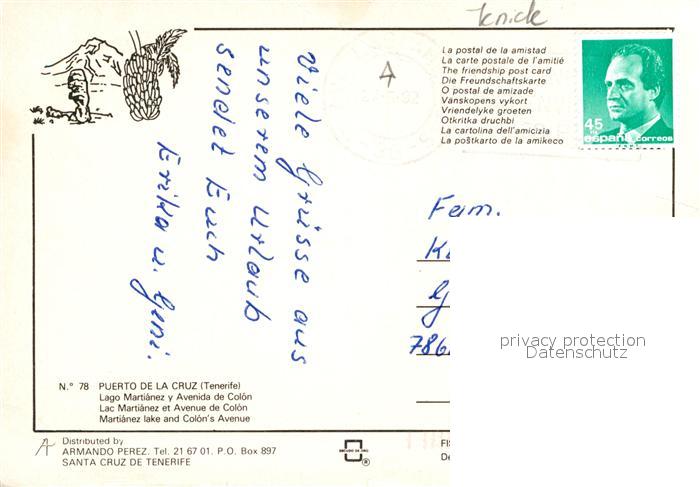 Knick
A
La postal de la amistad
La carte postale de l'amitié
The friendship post card
Die Freundschaftskarte
O postal de amizade
Vanskopens vykort
Vriendelyke groeten
Otkritka druchbi
La cartolina dell'amicizia
La poŝtkarto de la amikeco
45
españa correos
Viele Grüsse aus
unserem Urlaub
sendet Euch
Erika u.
Fam.
786
privacy protection
Datenschutz
N.° 78 PUERTO DE LA CRUZ (Tenerife)
Lago Martiánez y Avenida de Colón
Lac Martiánez et Avenue de Colón
Martiánez lake and Colón's Avenue
A
Distributed by
ARMANDO PEREZ. Tel. 21 67 01. P.O. Box 897
SANTA CRUZ DE TENERIFE
ESCUDO DE ORO
®
FIS
De